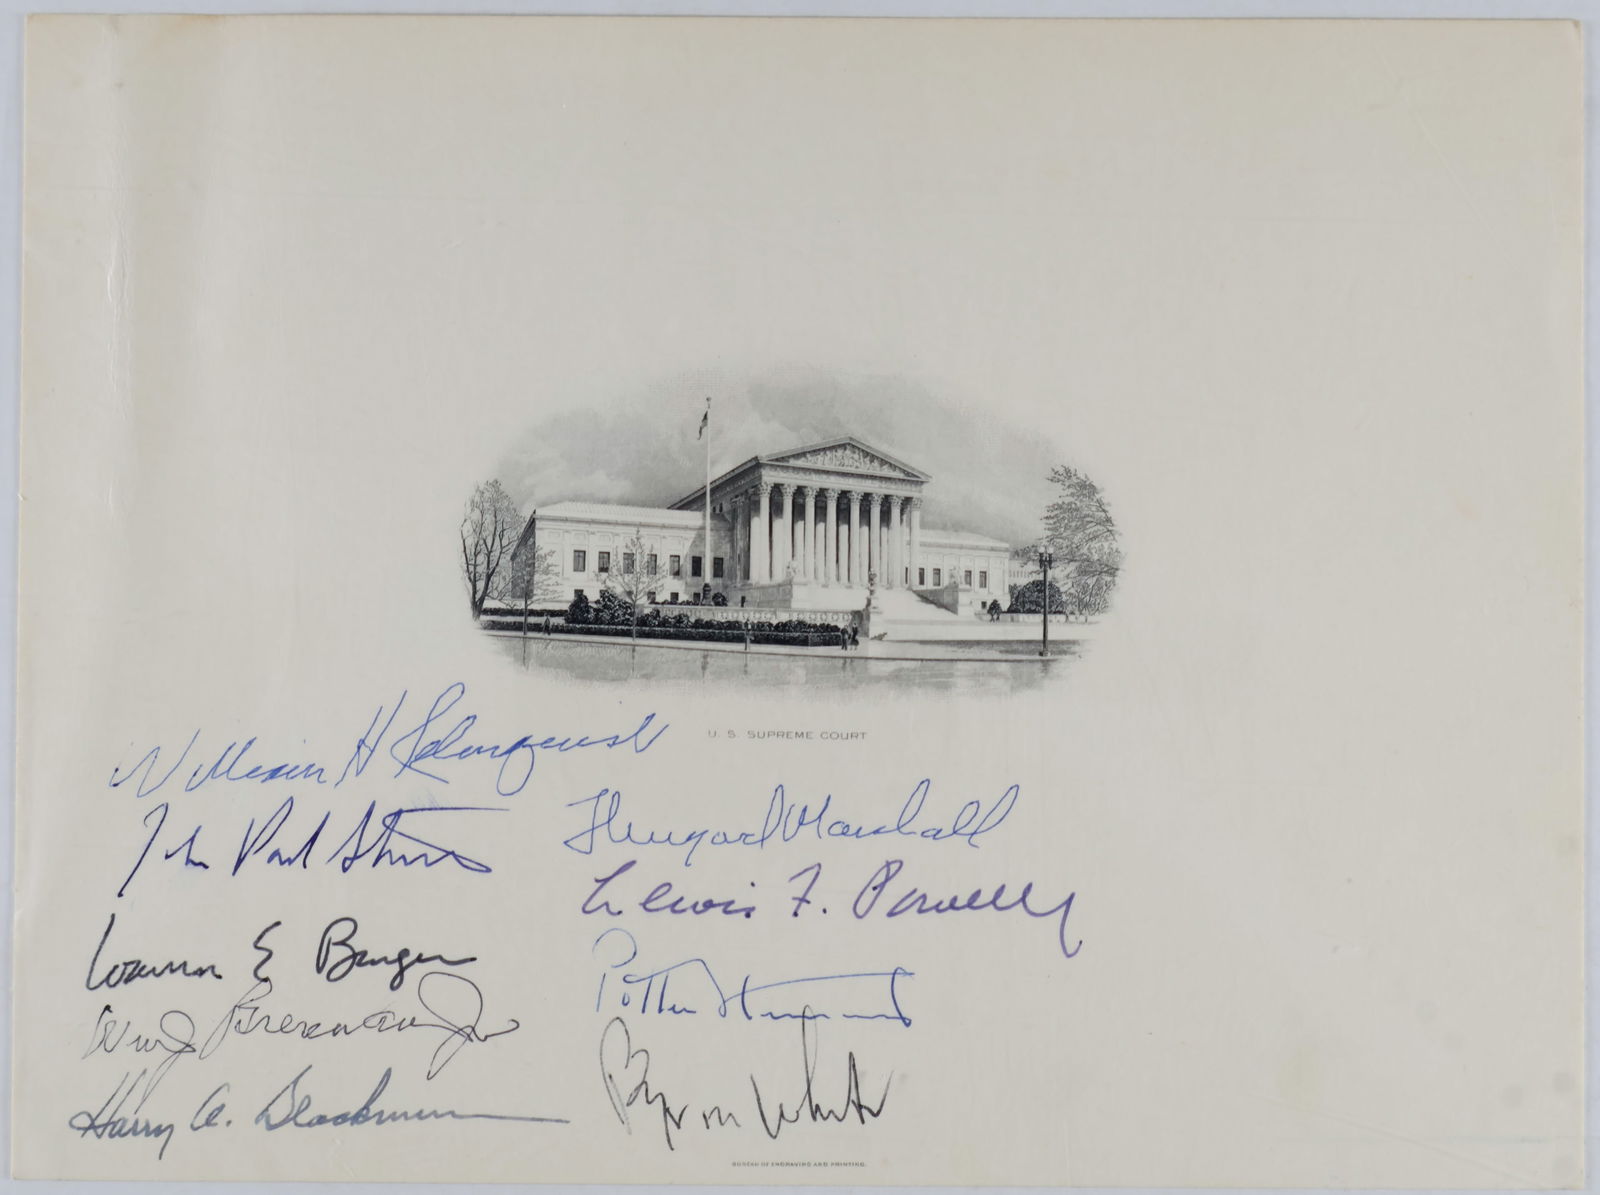 U. S. SUPREME COURT
William H Rehnquist
John Paul Stevens
Thurgood Marshall
Lewis F. Powell Jr
Warren E Burger
Potter Stewart
Wm J Brennan Jr
Byron White
Harry A. Blackmun
BUREAU OF ENGRAVING AND PRINTING.